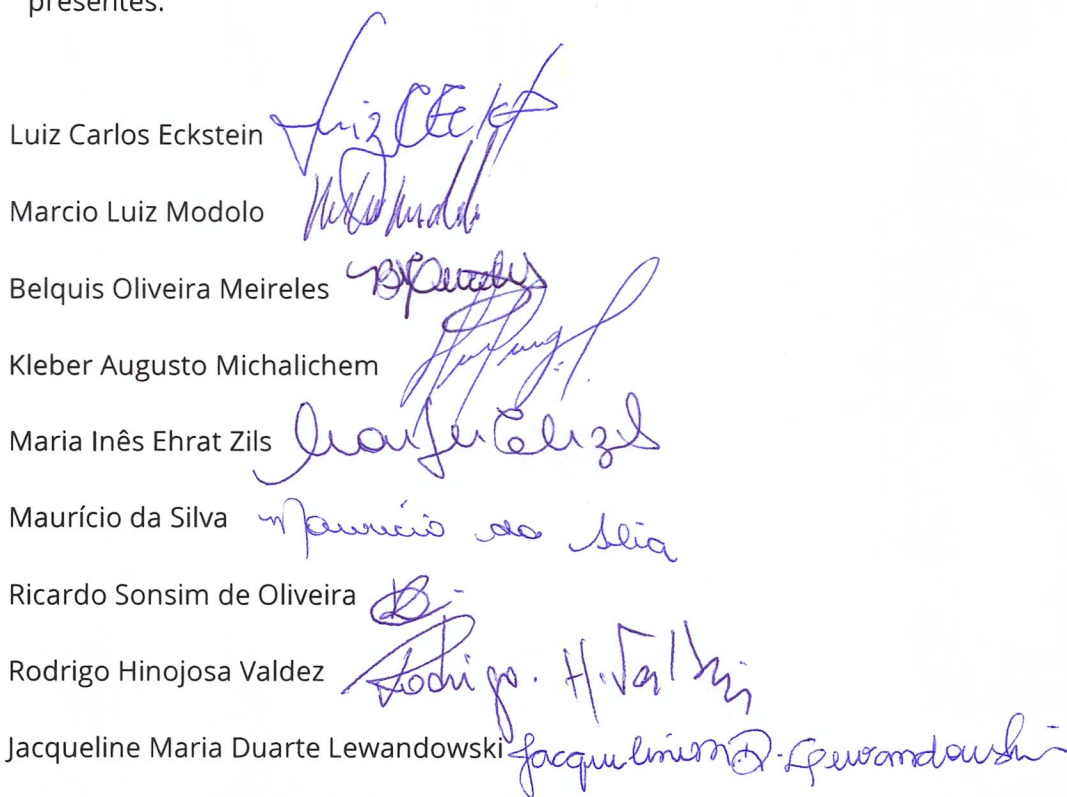 presentes.
Luiz Carlos Eckstein Luiz CEckst
Marcio Luiz Modolo
Belquis Oliveira Meireles
Kleber Augusto Michalichem
Maria Inês Ehrat Zils
Maurício da Silva Maurício da Silva
Ricardo Sonsim de Oliveira
Rodrigo Hinojosa Valdez Rodrigo. H. Valdez
Jacqueline Maria Duarte Lewandowski Jacqueline M D. Lewandowski